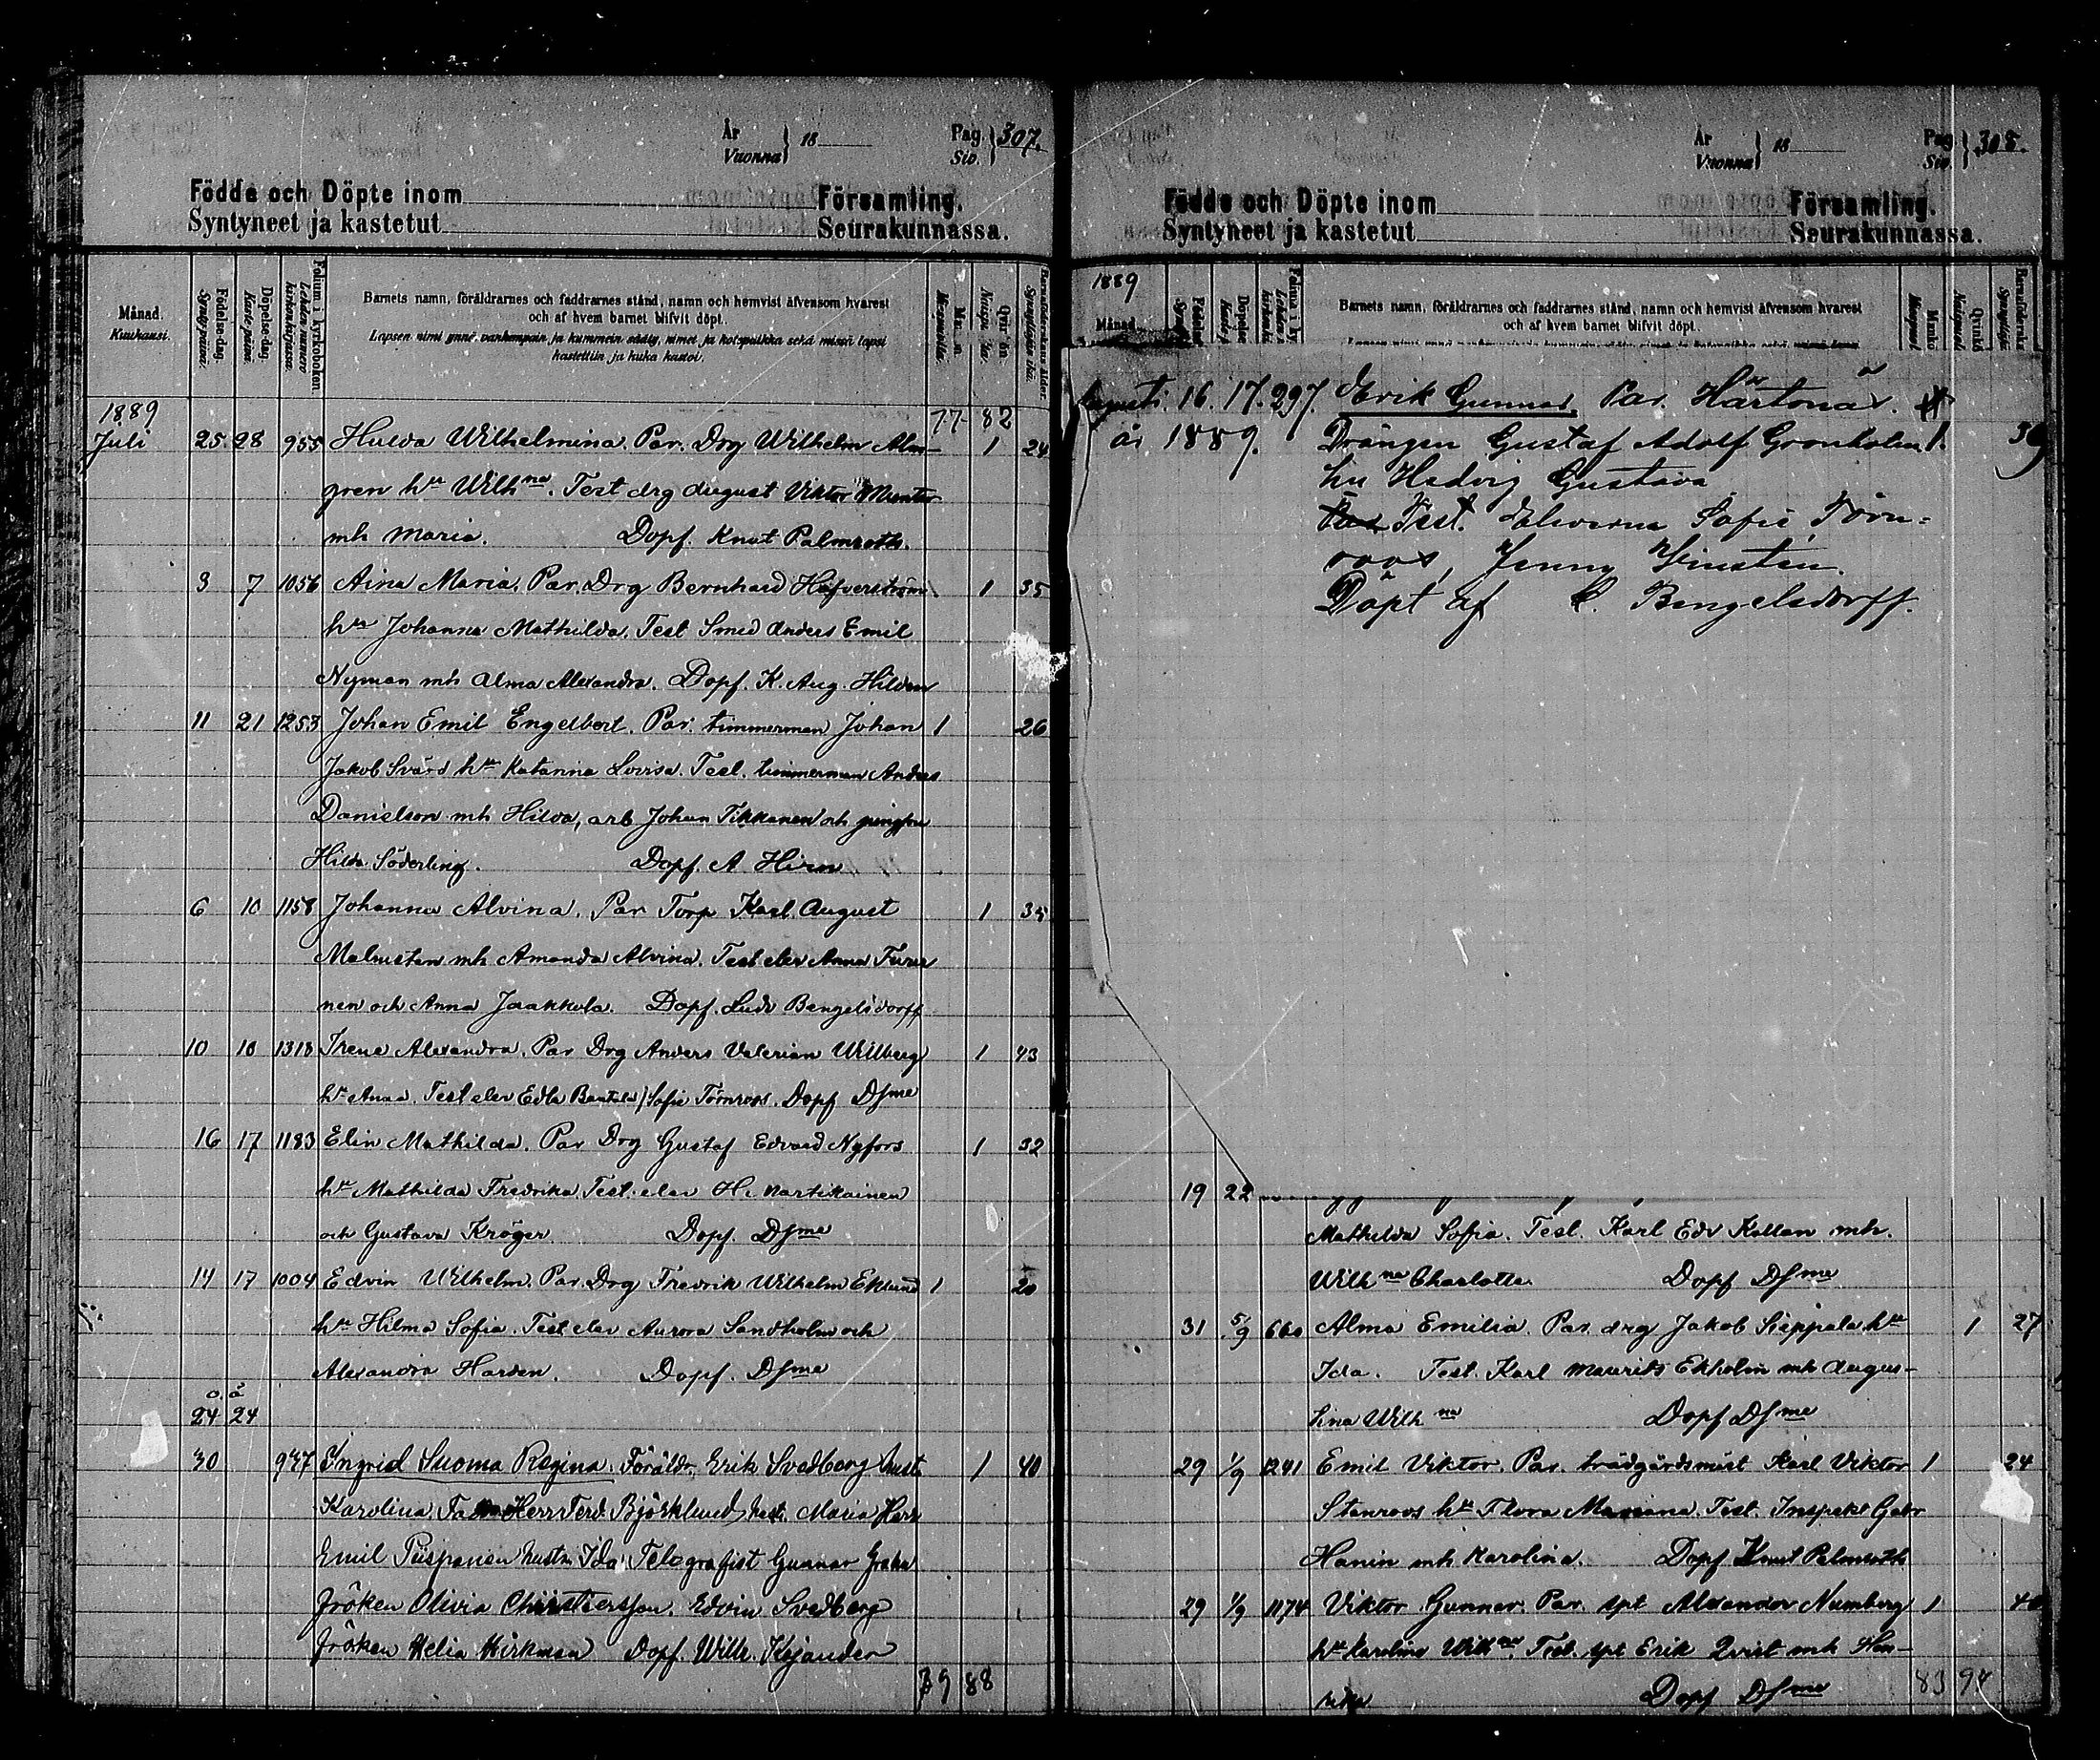 År
Vuonna } 18
Pag
Siv. } 307.
Födda och Döpte inom Församling.
Syntyneet ja kastetut Seurakunnassa.
Månad.
Kuukausi.
Födelse-dag.
Syntymäpäivä.
Döpelse-dag.
Kaste-päivä.
Folium i kyrkoboken.
Lehden numero kirkonkirjassa.
Barnets namn, föräldrarnes och faddrarnes stånd, namn och hemvist äfvensom hvarest
och af hvem barnet blifvit döpt.
Lapsen nimi ynnä vanhempain ja kummein sääty, nimet ja kotipaikka sekä missä lapsi
kastettiin ja kuka kastoi.
1889 77 82
Juli 25 28 955 Hulda Wilhelmina. Par. Drg Wilhelm Alm- 1 24
gren hu Wilhna. Test drg August Viktor Munter
mh Maria. Dopf. Knut Palmroth.
3 7 1056 Aina Maria. Par. Drg Bernhard Häfverström. 1 35
hu Johanna Mathilda. Test Smed Anders Emil
Nyman mh Alma Alexandra. Dopf. K. Aug. Hilden
11 21 1253 Johan Emil Engelbert. Par. timmerman Johan 1 26
Jakob Svärd hu Katarina Lovisa. Test. timmerman Anders
Danielson mh Hilda, arb Johan Tikkanen och jungfru
Hilda Söderling. Dopf. A Hirn
6 10 1158 Johanna Alvina. Par Torp Karl August 1 35
Malmsten mh Amanda Alvina. Test elev Anna
nen och Anna Jaakkola. Dopf. Ludv Bengelsdorff
10 10 1318 Irene Alexandra. Par Drg Anders Valerian Willberg 1 43
hu Anna. Test elev Edla Sofie Törnroos. Dopf Dsme
16 17 1183 Elin Mathilda. Par Drg Gustaf Edvard Nyfors 1 32
hu Mathilda Fredrika Test. elev H. Kartikainen
och Gustava Kröger Dopf. Dsme
14 17 1004 Edvin Wilhelm. Par. Drg Fredrik Wilhelm Eklund 1 20
hu Hilma Sofia. Test elev Aurora Sandholm och
Alexandra Harden. Dopf. Dsme
24 24
30 937 Ingrid Suoma Regina. Föräldr. Erik Svedberg hust 1 40
Karolina. Herr Ferd. Björklund hust. Maria Herr
Emil Piispanen hustr. Ida, Telegrafist Gunnar
fröken Olivia Christiersson. Edvin Svedberg
fröken Helia Wirkman Dopf. Wilh. Kajander
79 88
År
Vuonna } 18
Pag
Siv. } 308.
Födda och Döpte inom Församling.
Syntyneet ja kastetut Seurakunnassa.
1889
Månad
Barnets namn, föräldrarnes och faddrarnes stånd, namn och hemvist äfvensom hvarest
och af hvem barnet blifvit döpt.
Augusti 16. 17. 297. Erik Gunnar. Par. Härtonäs.
år 1889. Drängen Gustaf Adolf Gronholm 1.
hu Hedvig Gustava
Test. Eleverna Sofie Törn-
roos, Jenny Winstén.
Döpt af L. Bengelsdorff.
19 22
Mathilda Sofia. Test. Karl Edv Kallan mh.
Wilhna Charlotte. Dopf Dsme
31 5/9 660 Alma Emilia. Par. drg Jakob Sieppala hu 1 27
Ida. Test. Karl Maurits Ekholm mh Augus-
tina Wilhna Dopf Dsme
29 1/9 1241 Emil Viktor. Par. trädgårdsmäst Karl Viktor 1 24
Stenroos hu Flora Mariana. Test. Inspekt Gabr
Hanin mh Karolina. Dopf Knut Palmroth
29 1/9 1174 Viktor Gunnar. Par. spt Alexander Numberg 1
hu Karolina Wilhna. Test. spt Erik Qvist mh Hen-
rika Dopf Dsme
83 94